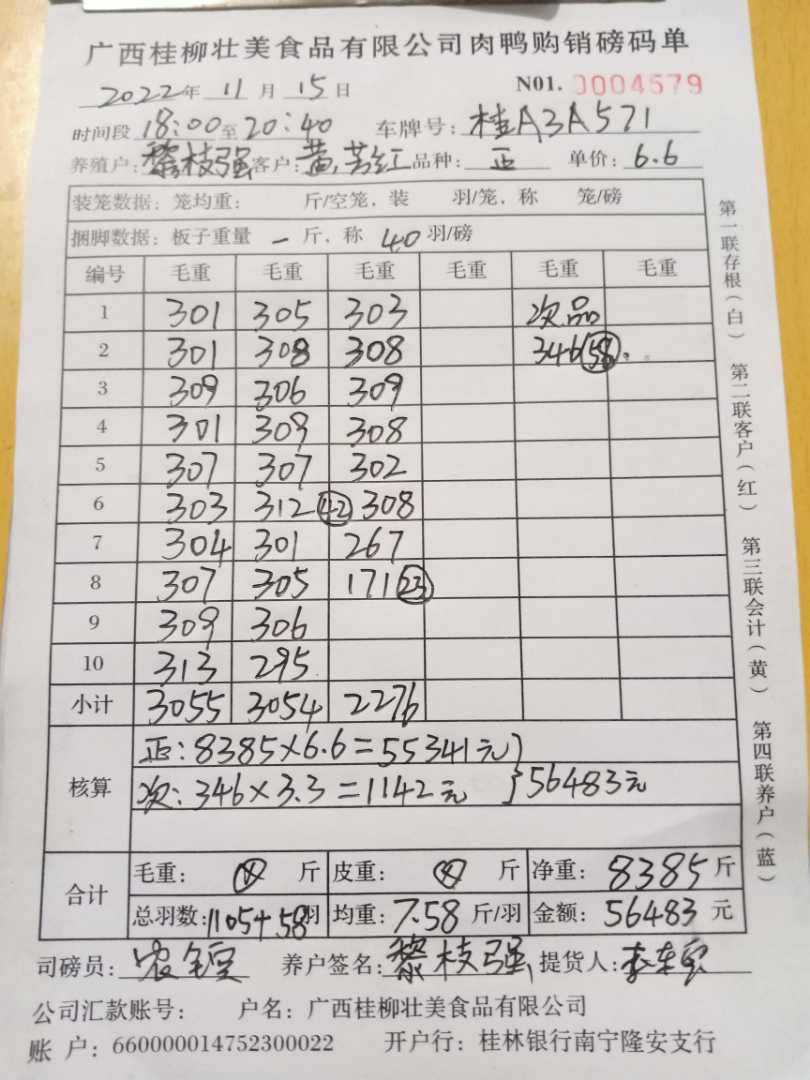 广西桂柳壮美食品有限公司肉鸭购销磅码单
2022年 11 月 15 日 N01. 0004579
时间段 18:00 至 20:40 车牌号: 桂A3A571
养殖户: 黎枝强 客户: 黄 红 品种: 正 单价: 6.6
装笼数据: 笼均重: 斤/空笼, 装 羽/笼, 称 笼/磅
捆脚数据: 板子重量 一 斤, 称 40 羽/磅
编号 毛重 毛重 毛重 毛重 毛重 毛重
1 301 305 303 次品
2 301 308 308 346 58
3 309 306 309
4 301 309 308
5 307 307 302
6 303 312 42 308
7 304 301 267
8 307 305 171 23
9 309 306
10 313 295
小计 3055 3054 2276
核算 正: 8385×6.6=55341元
次: 346×3.3=1142元 }56483元
合计 毛重: 斤 皮重: 斤 净重: 8385 斤
总羽数: 1105+58羽 均重: 7.58 斤/羽 金额: 56483 元
司磅员: 养户签名: 黎枝强 提货人:
公司汇款账号: 户名: 广西桂柳壮美食品有限公司
账 户: 660000014752300022 开户行: 桂林银行南宁隆安支行
第一联存根(白) 第二联客户(红) 第三联会计(黄) 第四联养户(蓝)